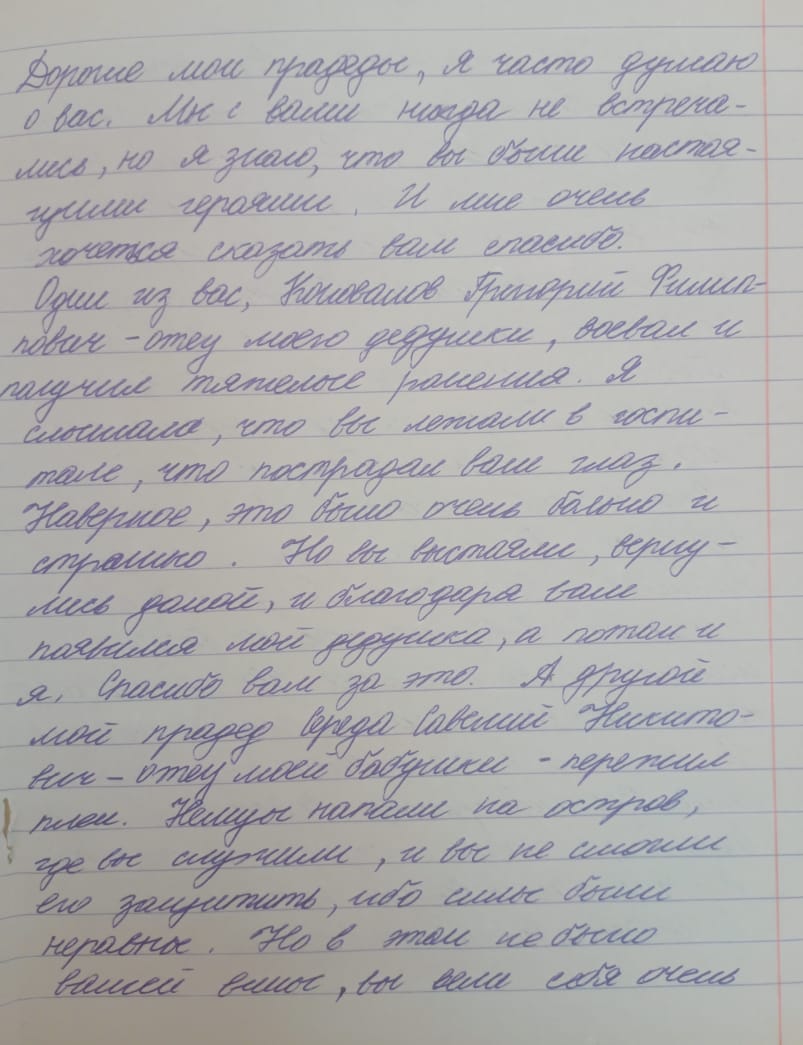 Дорогие мои прадеды, я часто думаю
о вас. Мы с вами никогда не встреча-
лись, но я знаю, что вы были настоя-
щими героями. И мне очень
хочется сказать вам спасибо.
Один из вас, Коновалов Григорий Филип-
пович - отец моего дедушки, воевал и
получил тяжелые ранения. Я
слышала, что вы лежали в госпи-
тале, что пострадал ваш глаз.
Наверное, это было очень больно и
страшно. Но вы выстояли, верну-
лись домой, и благодаря вам
появился мой дедушка, а потом и
я. Спасибо вам за это. А другой
мой прадед Середа Савелий Никито-
вич - отец моей бабушки - пережил
плен. Немцы напали на остров,
где вы служили, и вы не смогли
его защитить, ибо силы были
неравные. Но в этом не было
вашей вины, вы вели себя очень